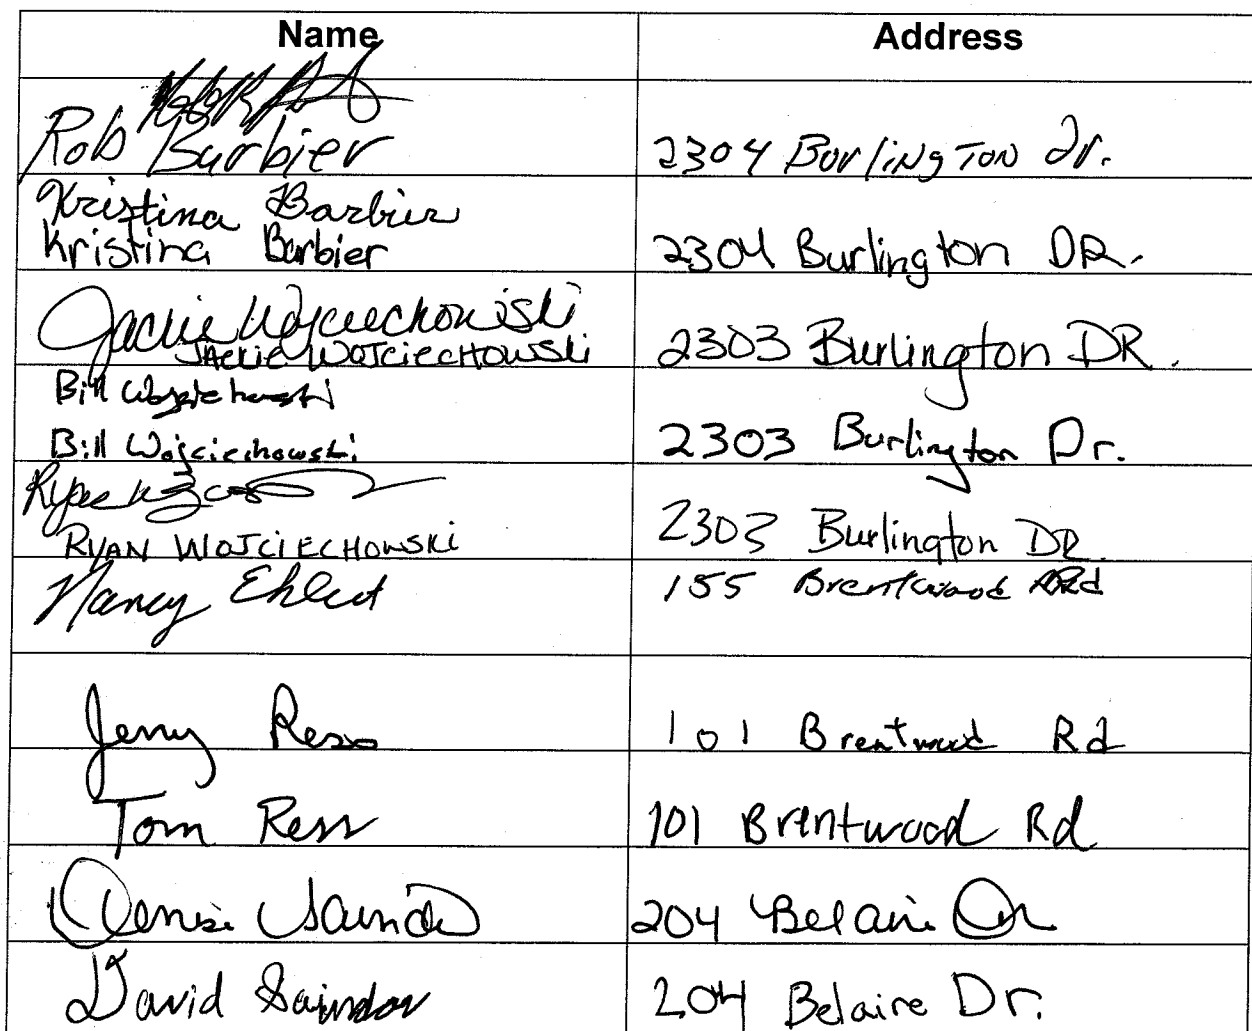 Name Address
Rob Barbier 2304 Burlington Dr.
Kristina Barbier
Kristina Barbier 2304 Burlington DR.
Jackie Wojciechowski
JACKIE WOJCIECHOWSKi 2303 Burlington DR.
Bill Wojciechowski
Bill Wojciechowski 2303 Burlington Dr.
RYAN WOJCIECHOWSKi 2303 Burlington DR
Nancy Ehlert 155 Brentwood Rd
Jerry Ress 101 Brentwood Rd
Tom Ress 101 Brentwood Rd
Denise 204 Belaire Dr
David 204 Belaire Dr.